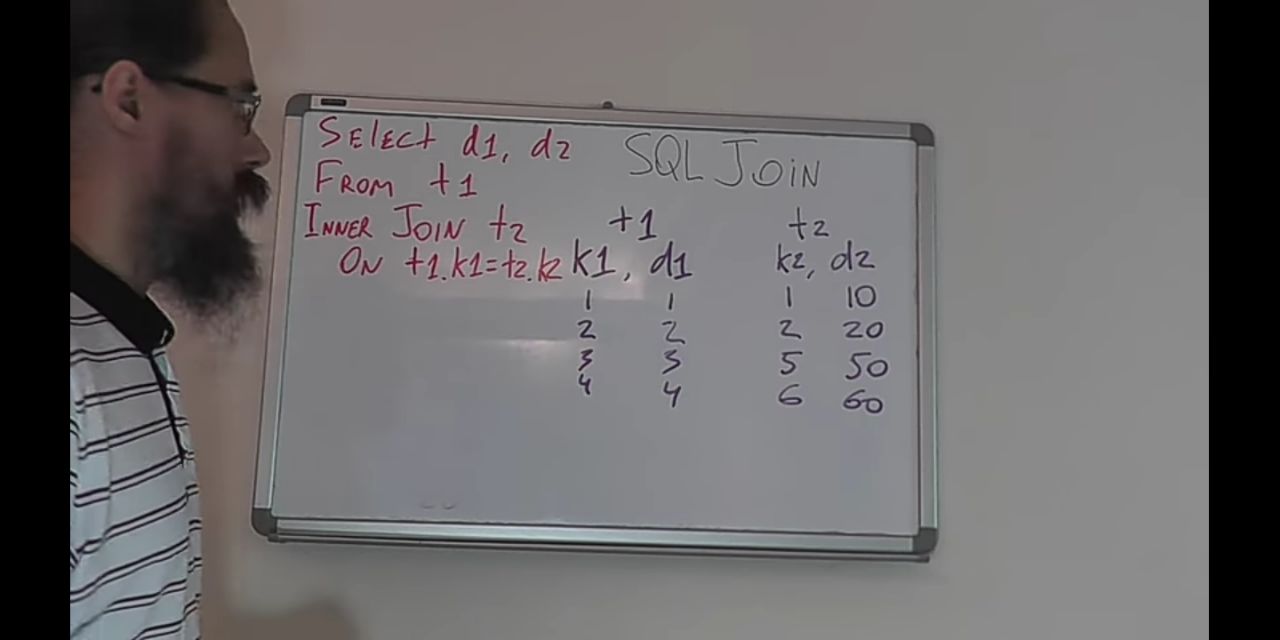 SElEct d1, d2
FROM t1
INNER JOIN t2
ON t1.k1=t2.k2
SQL JOiN
t1
k1, d1
1 1
2 2
3 3
4 4
t2
k2, d2
1 10
2 20
5 50
6 60